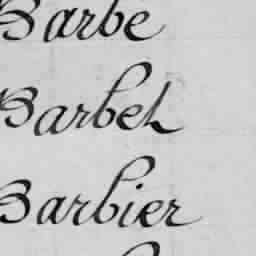 Barbe
Barbel
Barbier